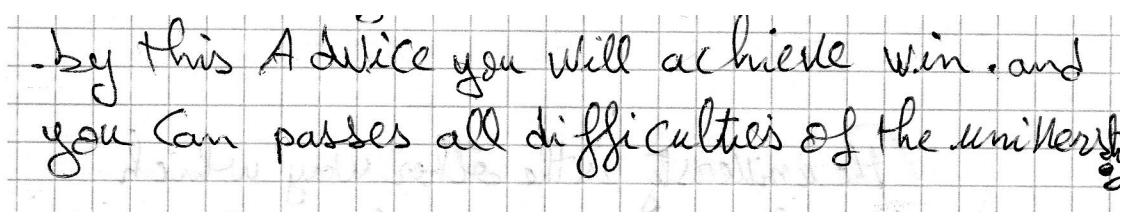 .by this Advice you will achieve win. and
you Can passes all difficulties of the universt